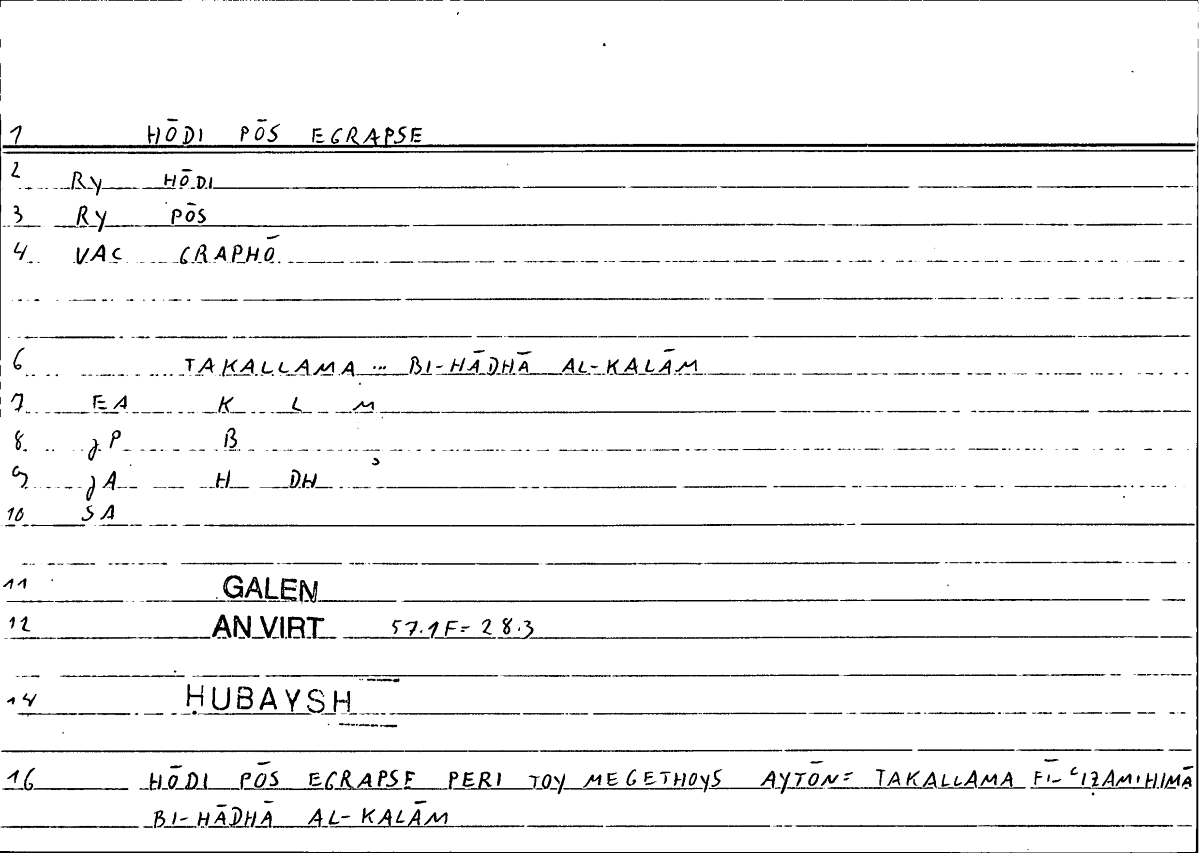 1 HŌDI PŌS EGRAPSE
2 Ry HŌDI
3 Ry PŌS
4 VAC GRAPHŌ
6 TAKALLAMA ... BI-HĀDHĀ AL-KALĀM
7 EA K L M
8 jP B
9 jA H DH ʾ
10 SA
11 GALEN
12 AN VIRT 57.1F= 28.3
14 ḤUBAYSH
16 HŌDI PŌS EGRAPSE PERI TOY MEGETHOYS AYTŌN= TAKALLAMA FĪ-ʿIẒAMIHIMĀ
BI-HĀDHĀ AL-KALĀM